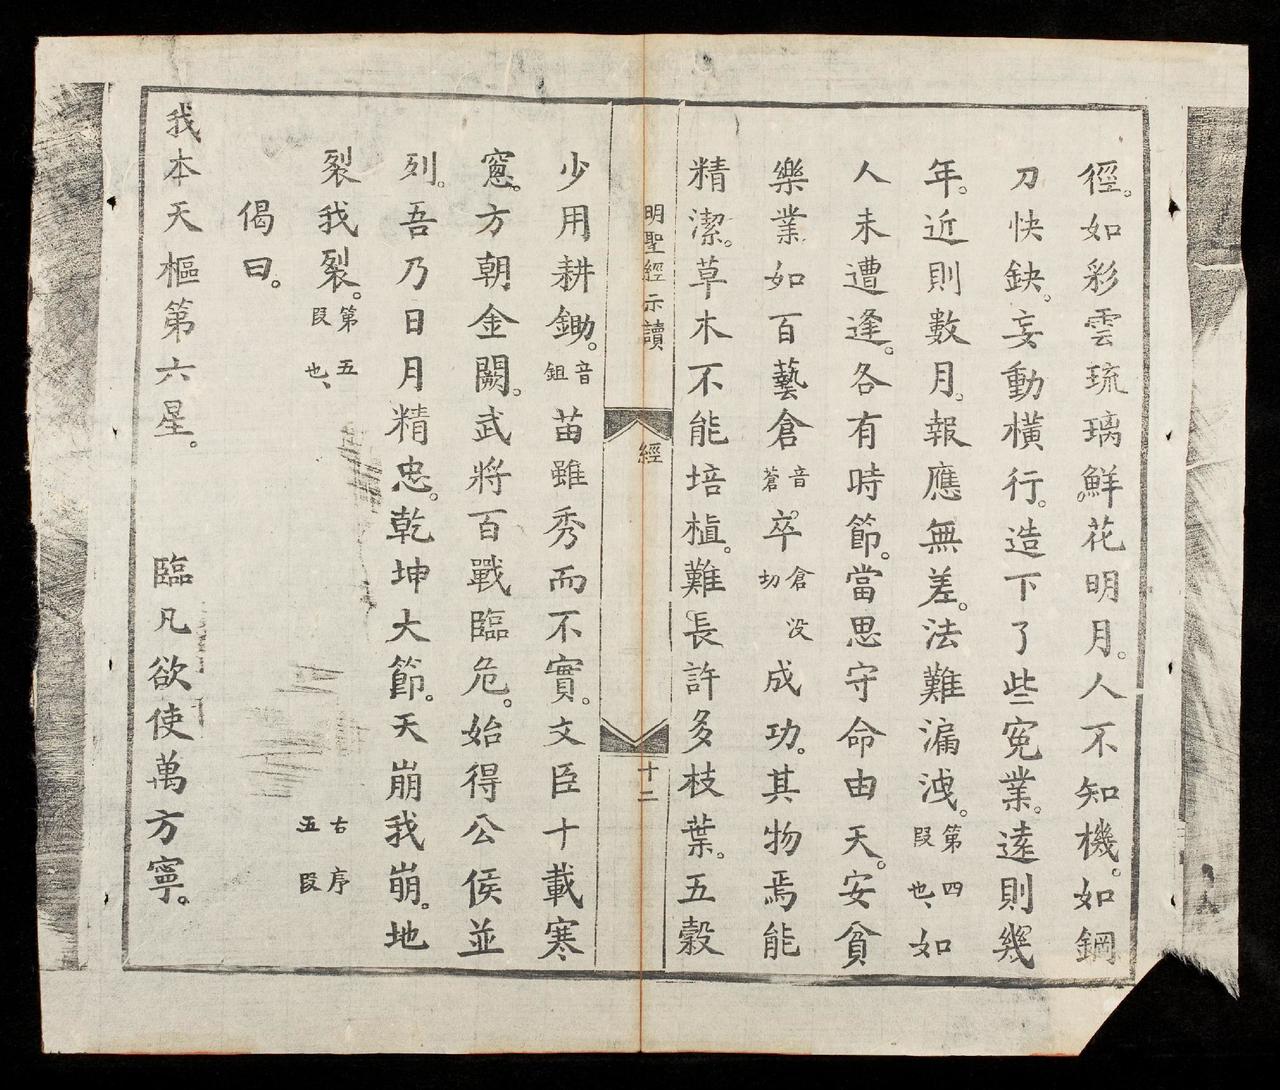 徑。如彩雲琉璃鮮。花明月。人不知機。如鋼
刀快鈌。妄動橫行。造下了些寃業。遠則幾
年。近則數月。報應無差。法難漏洩。第四段也、如
人未遭逢。各有時節。當思守命由天。安貧
樂業如百藝倉音蒼。卒倉没切成功。其物焉能
精潔。草木不能培植。難長許多枝葉。五穀
明聖經示讀 經 十二
少用耕鋤。音鉏苗雖秀而不實。文臣十載寒
窻。方朝金闕。武將百戰臨危。始得公侯並
列。吾乃日月精忠。乾坤大節。天崩我崩。地
裂我裂。第五段也、 右序五段
偈曰。
我本天樞第六星。 臨凡欲使萬方寧。